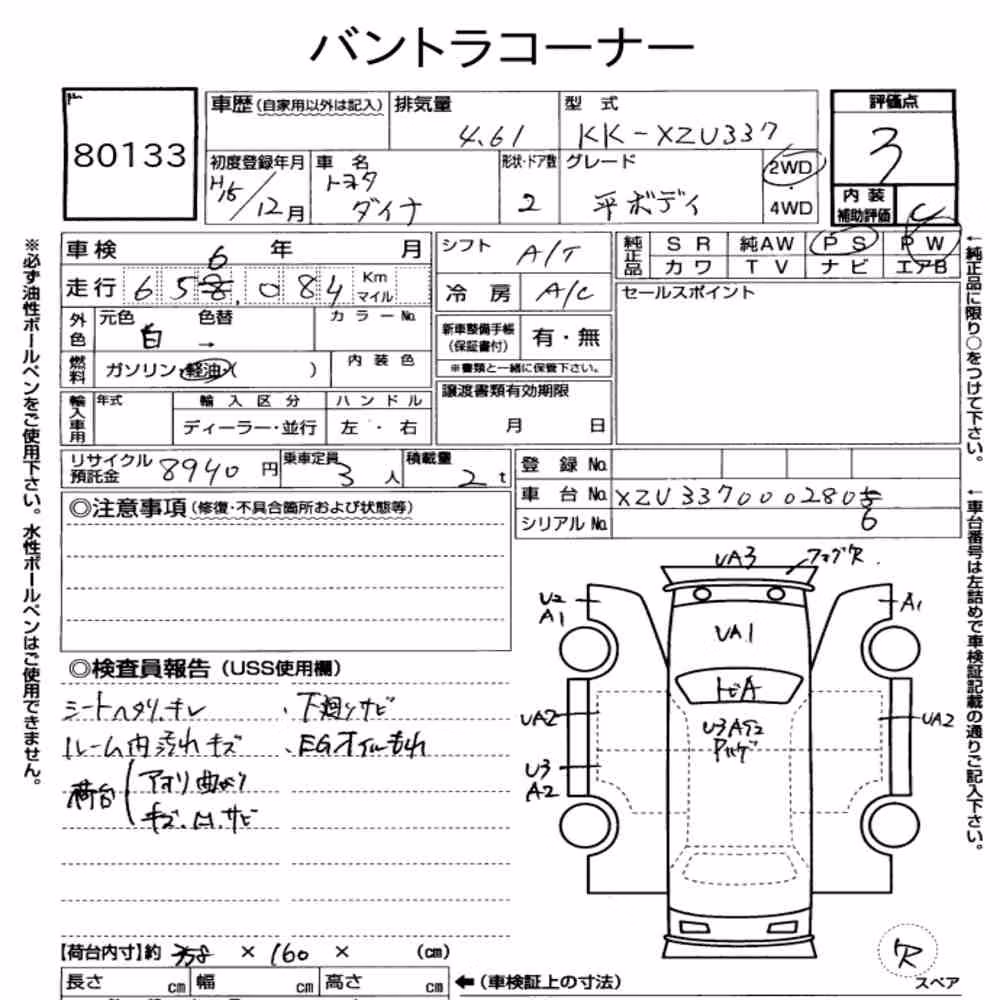 バントラコーナー
80133
車歴(自家用以外は記入)
排気量
4.61
型 式
KK-XZU337
評価点
3
初度登録年月
H15/12月
車 名
トヨタ
ダイナ
形状・ドア数
2
グレード
平ボデイ
2WD
・
4WD
内 装
補助評価
C
車 検 6 年 月
シフト A/T
純正品
S R 純AW P S P W
カ ワ T V ナ ビ エアB
走 行 658,084 Km マイル
冷 房 A/C
セールスポイント
外色 元色 白 色替 →
カ ラ ー No.
新車整備手帳
(保証書付)
有・無
※書類と一緒に保管下さい。
燃料 ガソリン・軽油・( )
内 装 色
譲渡書類有効期限
月 日
輸入車用 年式
輸 入 区 分
ハ ン ド ル
ディーラー・並行
左 ・ 右
リサイクル
預託金
8940 円
乗車定員 3 人
積載量 2 t
登 録 No.
車 台 No. XZU3370002806
シリアル No.
◎注意事項(修復・不具合箇所および状態等)
◎検査員報告(USS使用欄)
シートヘタリ、キレ
・下廻りサビ
ルーム内汚れキズ
・EGオイルもれ
荷台 アオリ曲り
キズ、凹、サビ
UA3
フォグワレ
U2
A1
A1
UA1
トビA
UA2
U3AS2
UA2
U3
A2
【荷台内寸】約 358 × 160 × (cm)
長さ cm 幅 cm 高さ cm
←(車検証上の寸法)
スペア
※必ず油性ボールペンをご使用下さい。水性ボールペンはご使用できません。
←純正品に限り○をつけて下さい。
←車台番号は左詰めで車検証記載の通りご記入下さい。